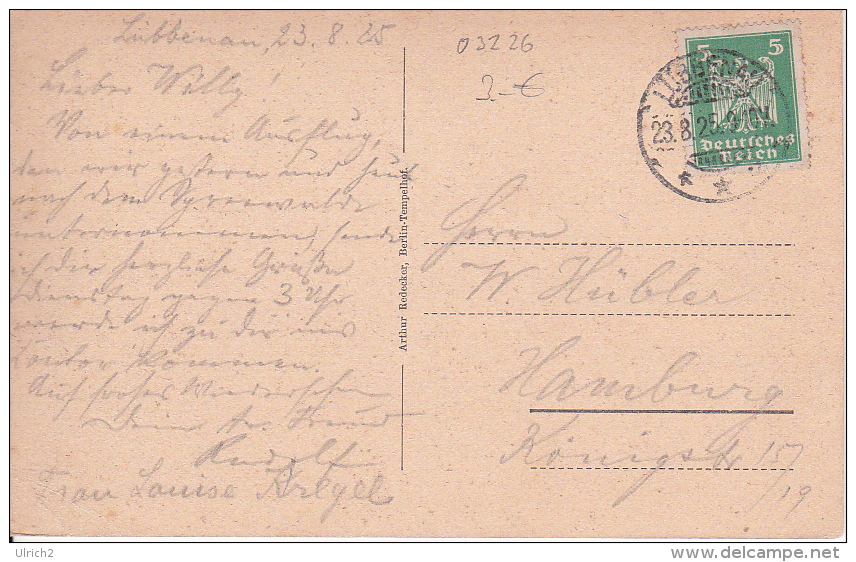 Lübbenau, 23. 8. 25
Lieber Willy!
Von einem Ausflug,
den wir gestern und heut
nach dem Spreewalde
unternommen, sende
ich dir herzliche Grüße
Dienstag gegen 3 Uhr
werde ich zu dir ins
Contor kommen.
Auf frohes Wiedersehen
Dein tr. Freund
Rudolf
Frau Louise Kregel
Arthur Redecker, Berlin-Tempelhof.
03226
3.-€
5 5
Deutsches
Reich
LÜBBENAU
23.8.25
Herrn
W. Hübler
Hamburg
Königstr 15/
/19
Ulrich2
http://www.delcampe.net